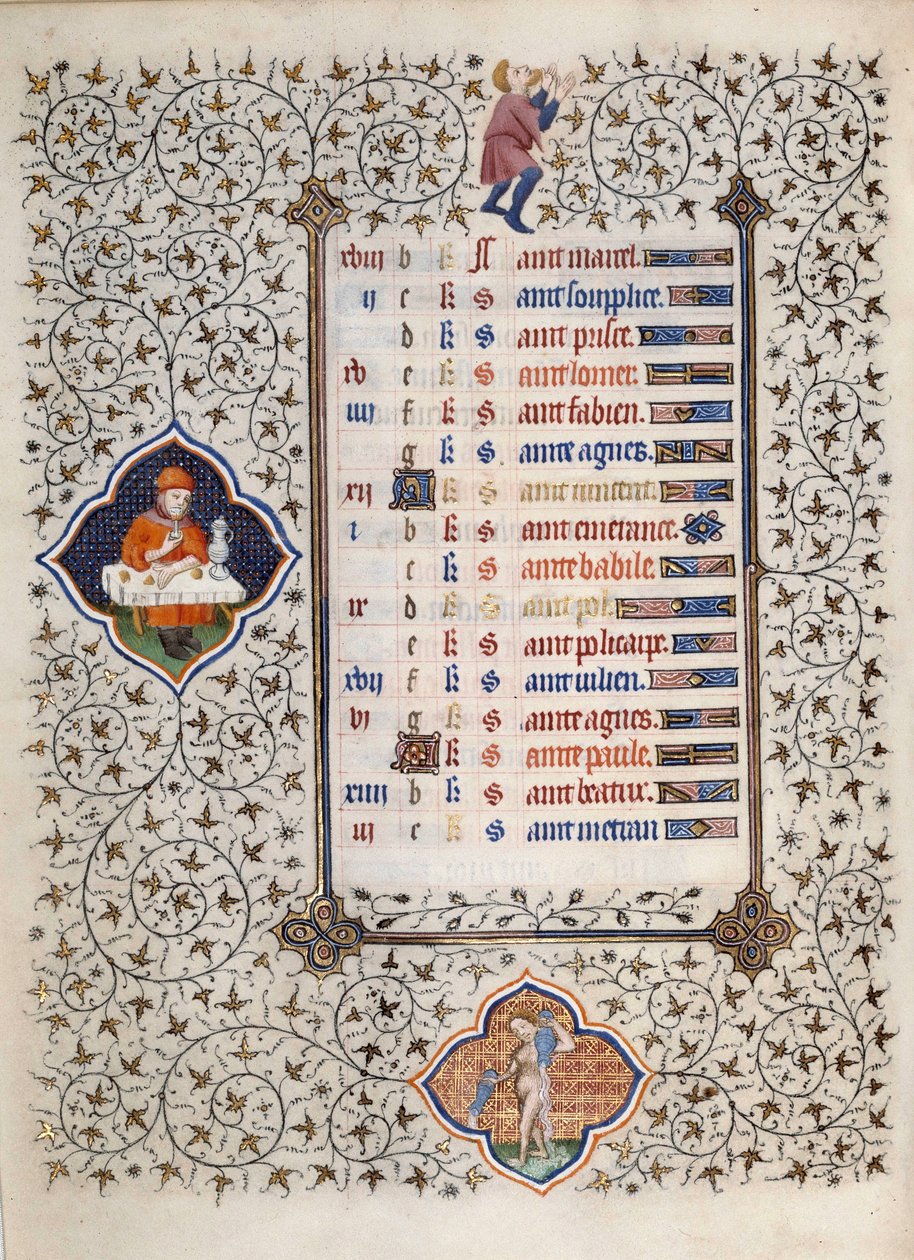 xviii b k Saint marcel.
ii c k Saint souplice.
d k Saint prisce.
xv e k Saint lomer.
iiii f k Saint fabien.
g k Sainte agnes.
xii A k Saint vincent.
i b k Saint emerance.
c k Sainte babile.
ix d k Saint pol.
e k Saint policarpe.
xvii f k Saint iulien.
vi g k Sainte agnes.
A k Sainte paule.
xiiii b k Saint beatrix.
iii c k Saint metran